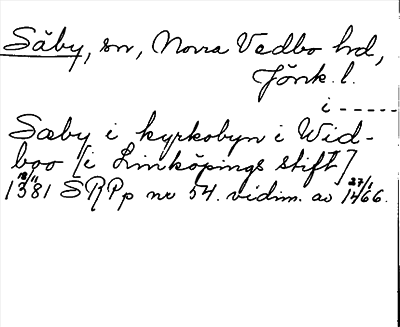 Säby, sn, Norra Vedbo hd,
Jönk. l.
i -----
Sæby i kyrkobyn i Wid-
boo [i Linköpings stift]
18/11 1381 SRPp nr 54. vidim. av 27/1 1466.